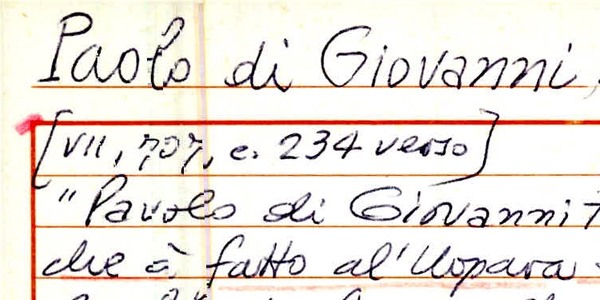 Paolo di Giovanni,
[VII, 707, c. 234 verso]
"Pavolo di Giovanni
che à fatto al'Uopara